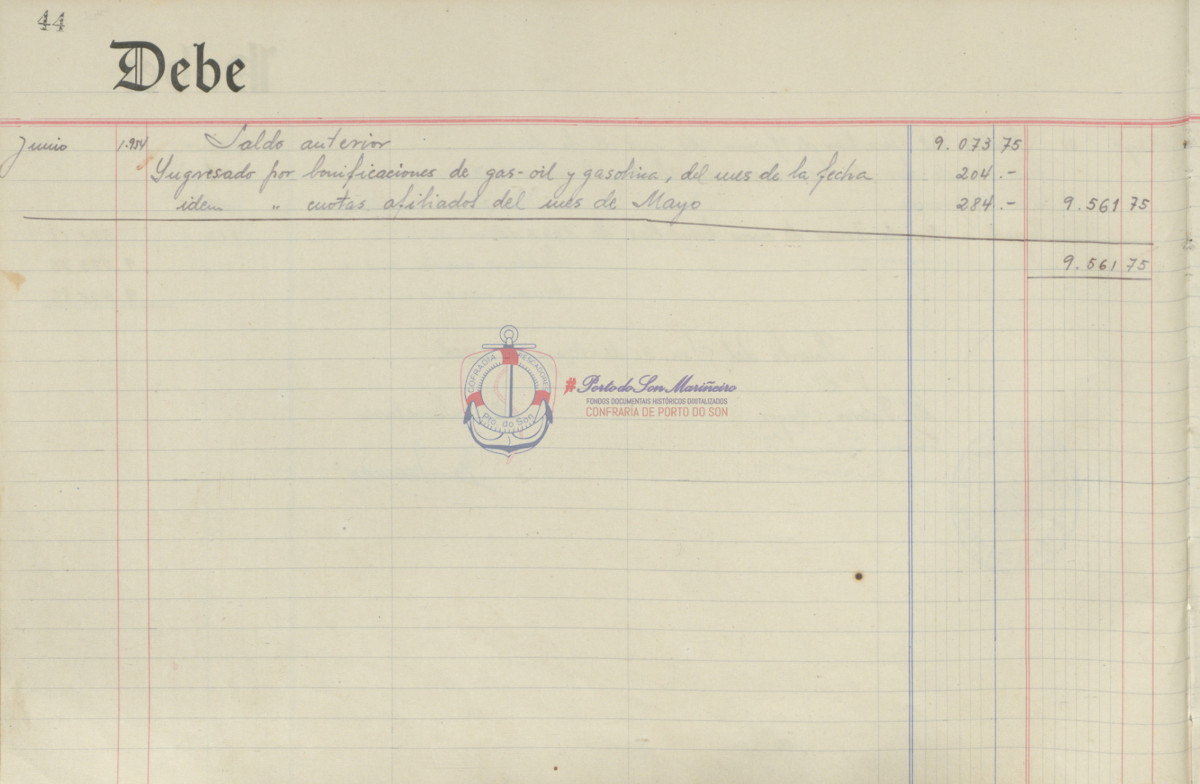 44
Debe
Junio 1.954 Saldo anterior 9.073 75
Yngresado por bonificaciones de gas-oil y gasolina, del mes de la fecha 204.-
idem " cuotas afiliados del mes de Mayo 284.- 9.561 75
9.561 75
COFRADIA PESCADORES
Pto. do Son
#Porto do Son Mariñeiro
FONDOS DOCUMENTAIS HISTÓRICOS DIXITALIZADOS
CONFRARÍA DE PORTO DO SON